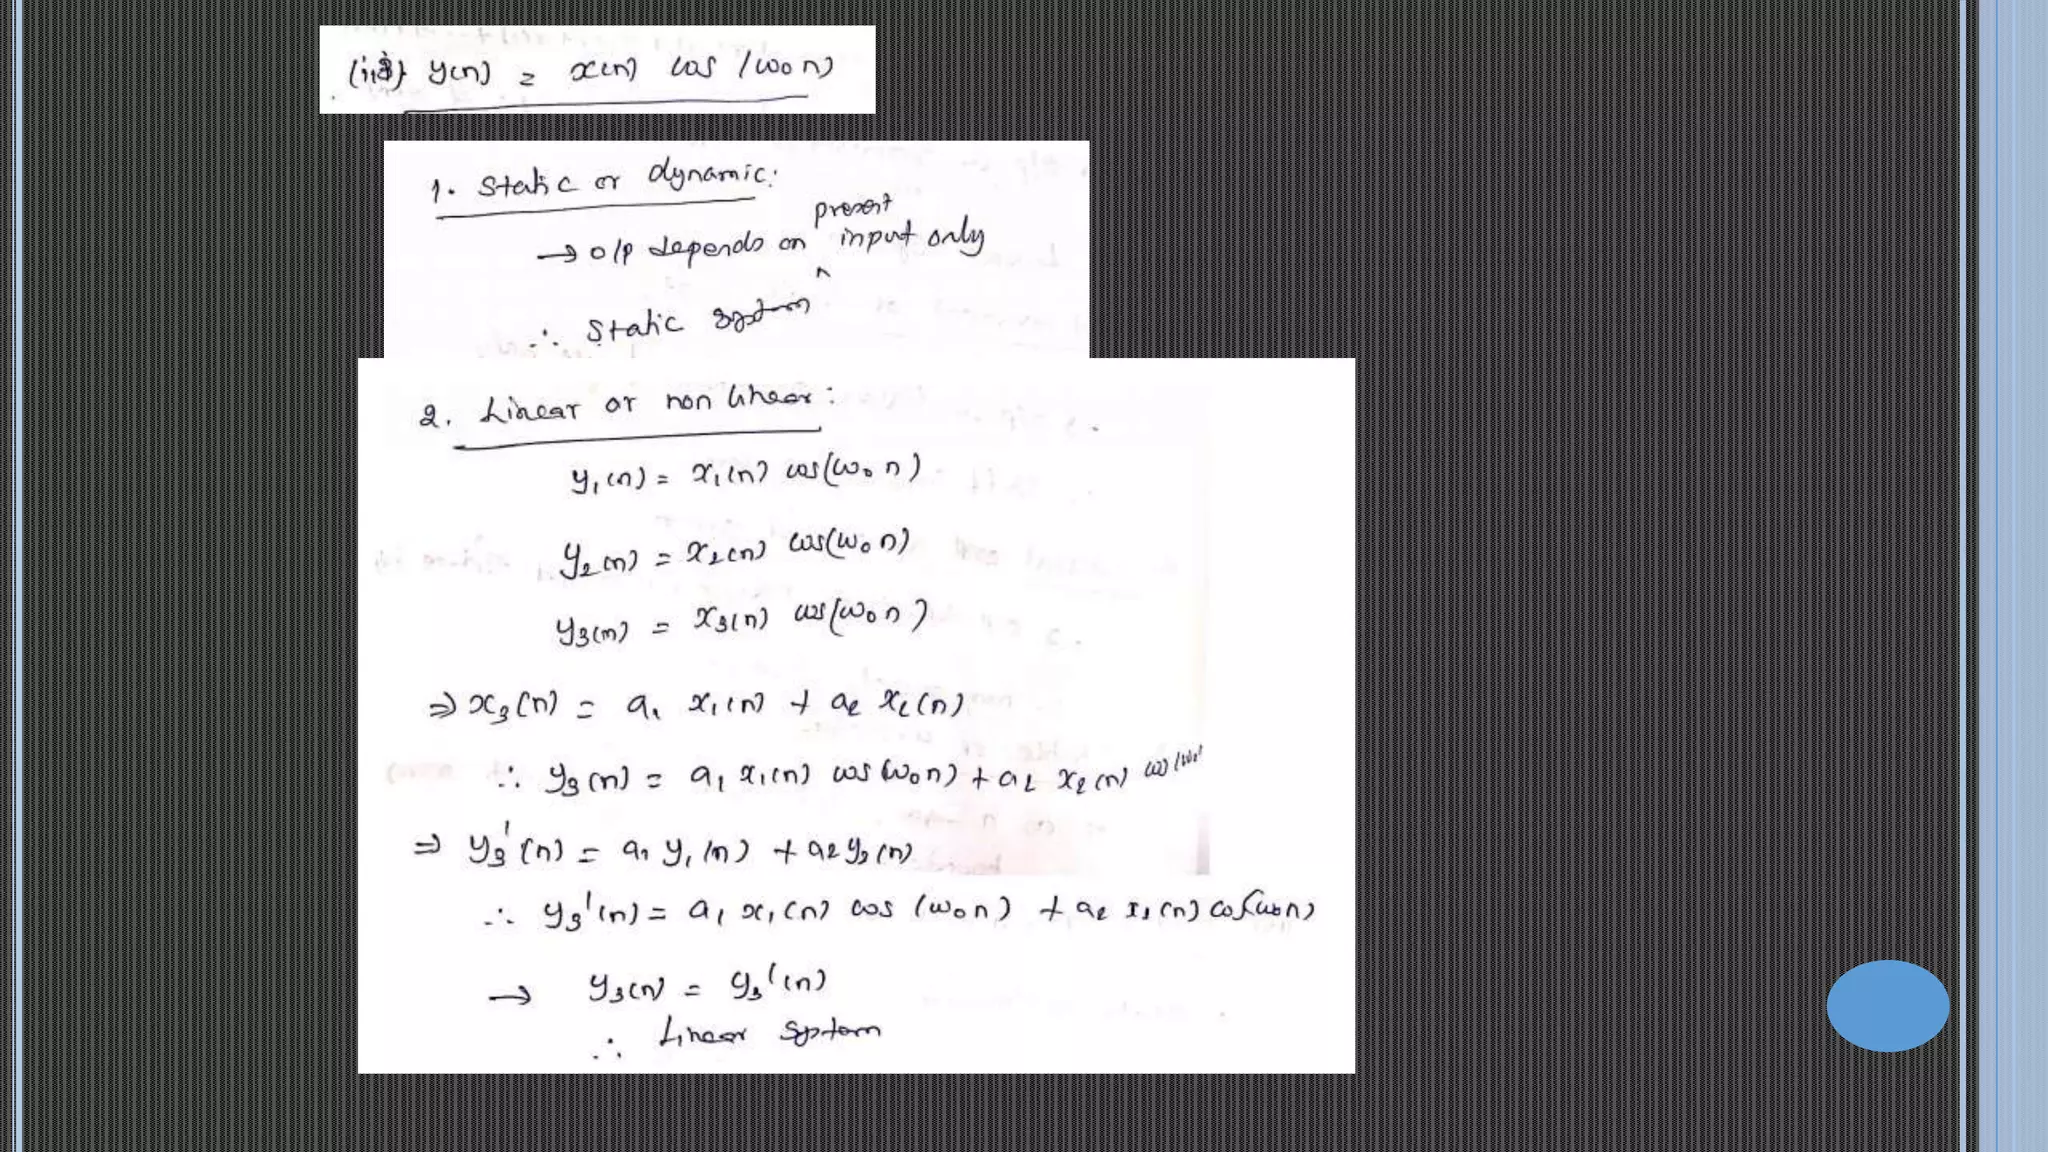 (iii) y(n) = x(n) cos (ω₀n)
1. Static or dynamic:
→ o/p depends on present input only
∴ Static system
2. Linear or non linear:
y₁(n) = x₁(n) cos(ω₀n)
y₂(n) = x₂(n) cos(ω₀n)
y₃(n) = x₃(n) cos(ω₀n)
⇒ x₃(n) = a₁ x₁(n) + a₂ x₂(n)
∴ y₃(n) = a₁ x₁(n) cos(ω₀n) + a₂ x₂(n) cos(ω₀n
⇒ y₃'(n) = a₁ y₁(n) + a₂ y₂(n)
∴ y₃'(n) = a₁ x₁(n) cos (ω₀n) + a₂ x₂(n) cos(ω₀n)
→ y₃(n) = y₃'(n)
∴ Linear system